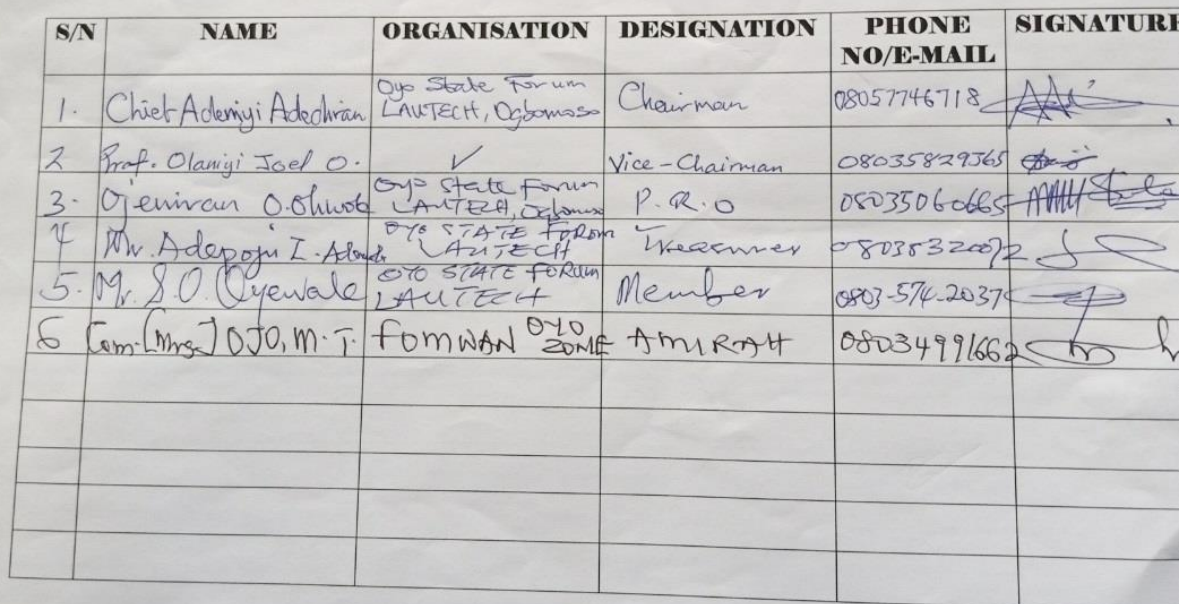 S/N NAME ORGANISATION DESIGNATION PHONE NO/E-MAIL SIGNATURE
1. Chief Adeniyi Oyo State Forum LAUTECH, Ogbomoso Chairman 08057746718
2 Prof. Olaniyi Joel O. ✓ Vice-Chairman 08035829365
3. O. Oyo State Forum LAUTECH, Ogbomoso P.R.O 08035060665
4 Mr. Adepoju I. OYO STATE FORUM LAUTECH Treasurer
5. Mr. S.O. Oyewale OYO STATE FORUM LAUTECH Member 0803-574-2037
6 Com. [Mrs.] OJO, M.T. FOMWAN OYO ZONE AMIRAH 08034991662